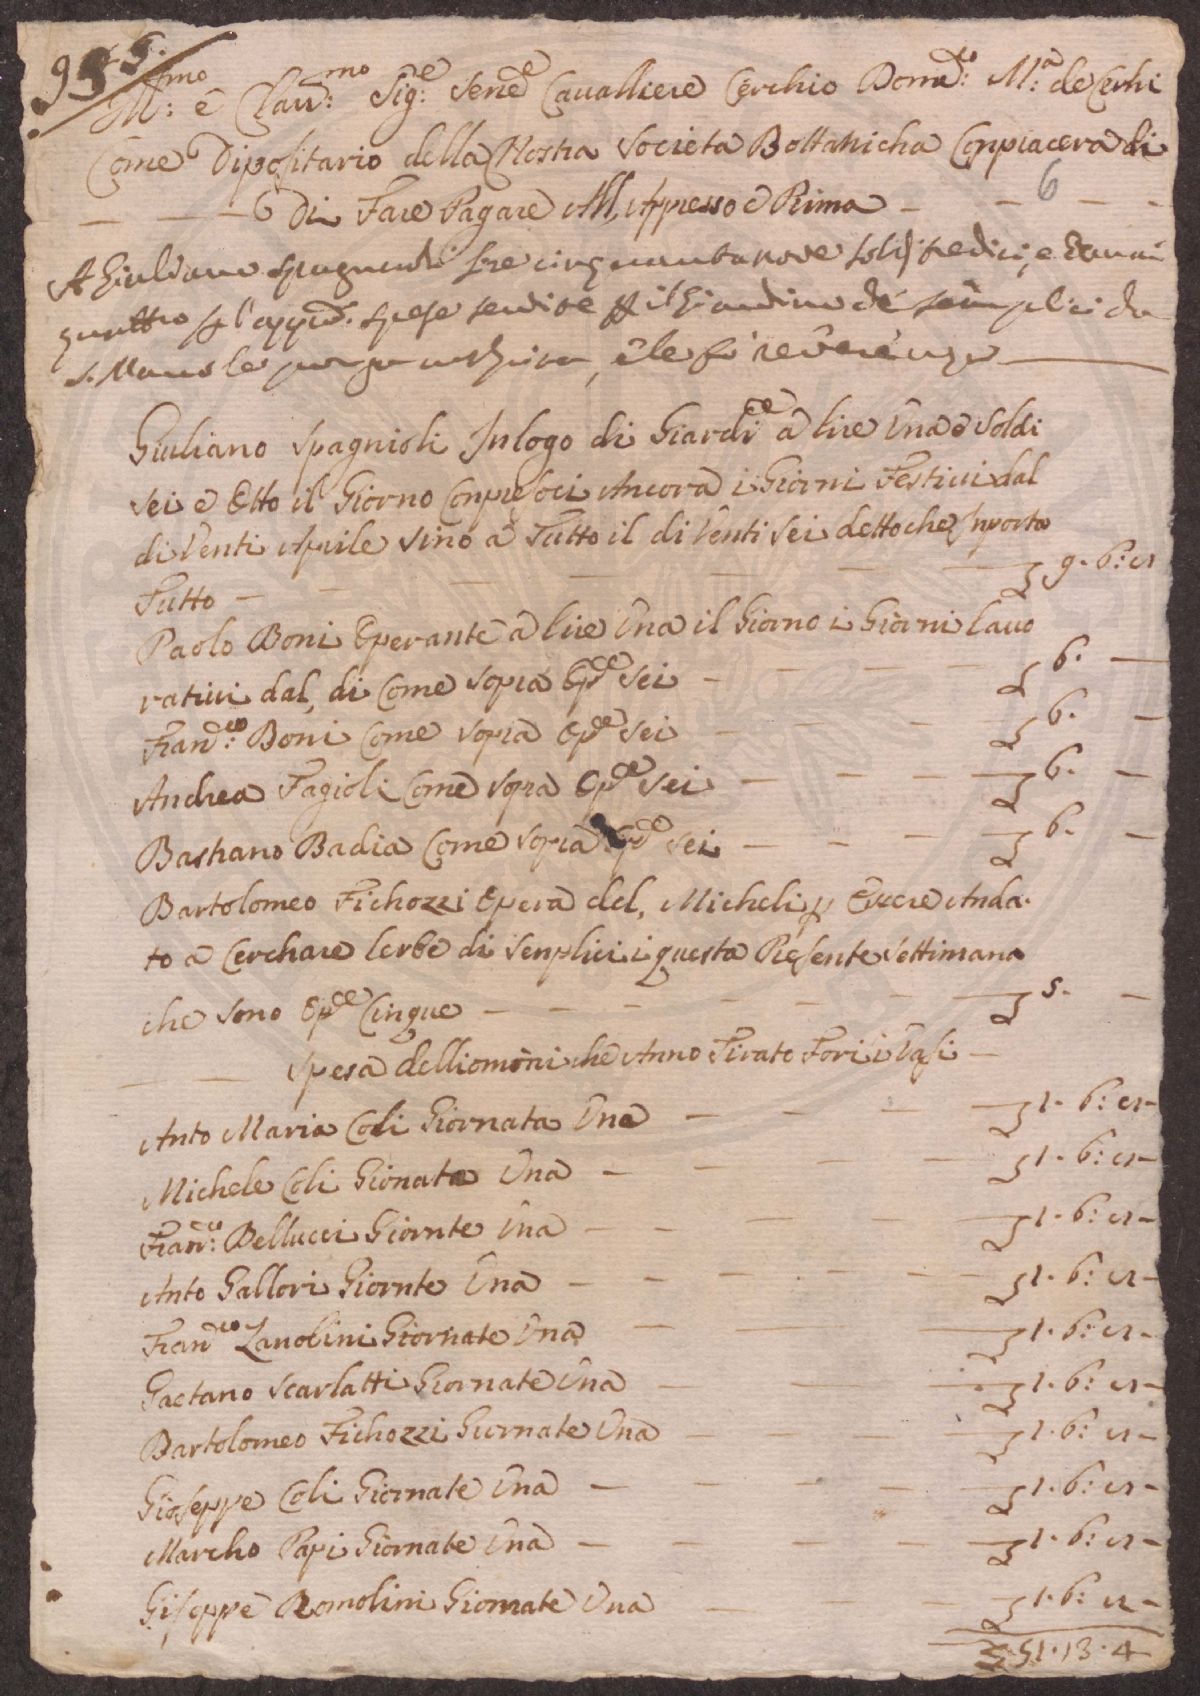 955.
Ill:mo e Clar:mo Sig:e Sene:e Cavalliere Cerchio Dome:co M:a de Cerhi
Come Dipositario della Nostra Societa Bottanicha Conpiacera di
6
Di Fare Pagare All, Appresso e Prima
A Giuliano Spagnuoli lire cinquantanove soldi tredici, e denari
quattro p l'appiè spese servite p il Giardino de semplici da
S. Marco
Giuliano Spagnioli Inlogo di Giardi:ce a lire Una e Soldi
sei e Otto il Giorno Conpresoci Ancora i Giorni Festivi dal
di Venti Aprile Sino a Tutto il di Venti Sei detto che Inporta
Tutto — — — — — 9. 6: 8
Paolo Boni Operante a lire Una il Giorno i Giorni lavo
rativi dal, di Come Sopra Op:re Sei — — 6. —
Fran:co Boni Come Sopra Op:re Sei — — 6. —
Andrea Fagioli Come Sopra Op:re Sei — — 6. —
Bastiano Badia Come Sopra Op:re Sei — — 6. —
Bartolomeo Fichozzi Opera del, Micheli p Esere Anda.
to a Cerchare lerbe di Senplici i questa Presente Settimana
che Sono Op:re Cinque — — 5. —
Spesa delliomoni che Anno Tirato Fori i Vasi —
Anto Maria Coli Giornata Una — — 1. 6: 8 —
Michele Coli Gionata Una — — 1. 6: 8 —
Fran:co Bellucci Giornte Una — — 1. 6: 8 —
Anto Gallori Giornte Una — — 1. 6: 8 —
Fran:co Zanobini Giornate Una — — 1. 6: 8 —
Gaetano Scarlatti Giornate Una — — 1. 6: 8 —
Bartolomeo Fichozzi Gurnate Una — — 1. 6: 8 —
Gioseppe Coli Giornate Una — — 1. 6: 8 —
Marcho Papi Giornate Una — — 1. 6: 8 —
Giseppe Romolini Giornate Una — — 1. 6: 8 —
51. 13. 4